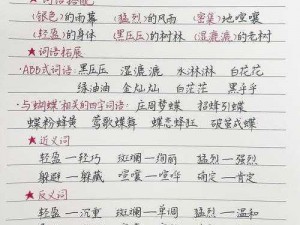 (银色)的雨幕 (猛烈)的风雨 (密集)地喧嚷
(轻盈)的身体 (黑压压)的树林 (湿漉漉)的老树
★词语拓展
·ABB式词语:黑压压 湿漉漉 水淋淋 白花花
绿油油 金灿灿 白茫茫 黑乎乎
·与"蝴蝶"相关的四字词语:庄周梦蝶 招蜂引蝶
蝶粉蜂黄 莺歌蝶舞 蝶恋蜂狂 破茧成蝶
★近义词
轻盈—轻巧 斑斓—绚丽 猛烈—强烈
躲避—躲藏 喧嚷—喧哗 确定—肯定
★反义词
轻盈—沉重 斑斓—单调 猛烈—温和